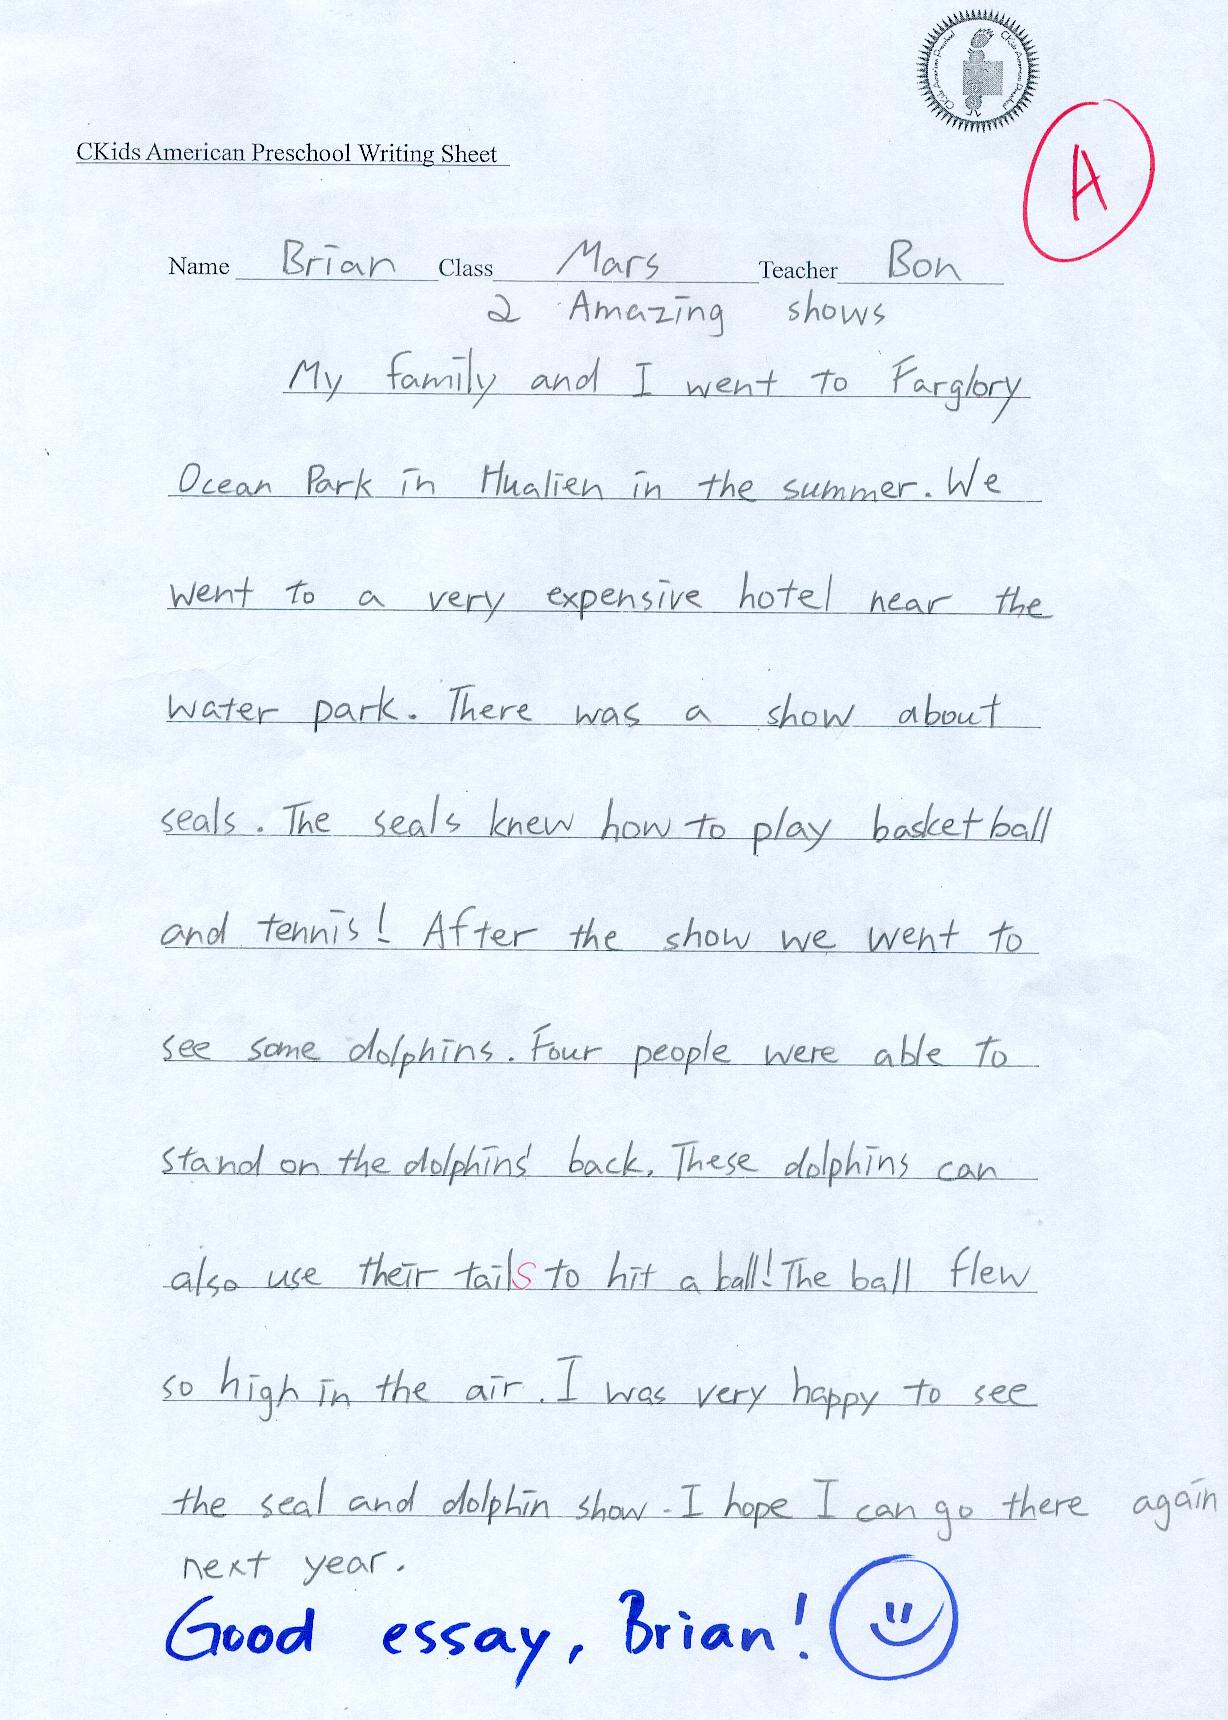 CKids American Preschool
CKids American Preschool
CKids American Preschool Writing Sheet
A
Name Brian Class Mars Teacher Bon
2 Amazing shows
My family and I went to Farglory
Ocean Park in Hualien in the summer. We
went to a very expensive hotel near the
water park. There was a show about
seals. The seals knew how to play basketball
and tennis! After the show we went to
see some dolphins. Four people were able to
stand on the dolphins' back. These dolphins can
also use their tails to hit a ball! The ball flew
so high in the air. I was very happy to see
the seal and dolphin show. I hope I can go there again
next year.
Good essay, Brian!